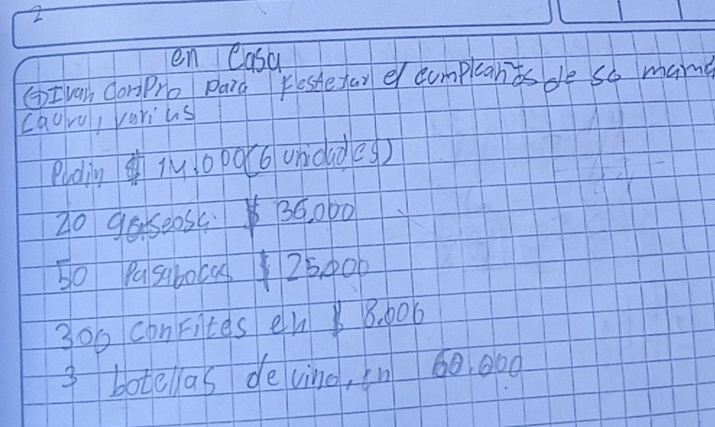 2
en Casa
① Ivan Compro para Festejar el cumpleaños de so mama
Laura, varias
Pudin $ 14.000 (6 unidades)
20 gaseosa $ 36.000
50 Pasabocas $ 25.000
300 conFites en $ 8.000
3 botellas de vino, en 60.000